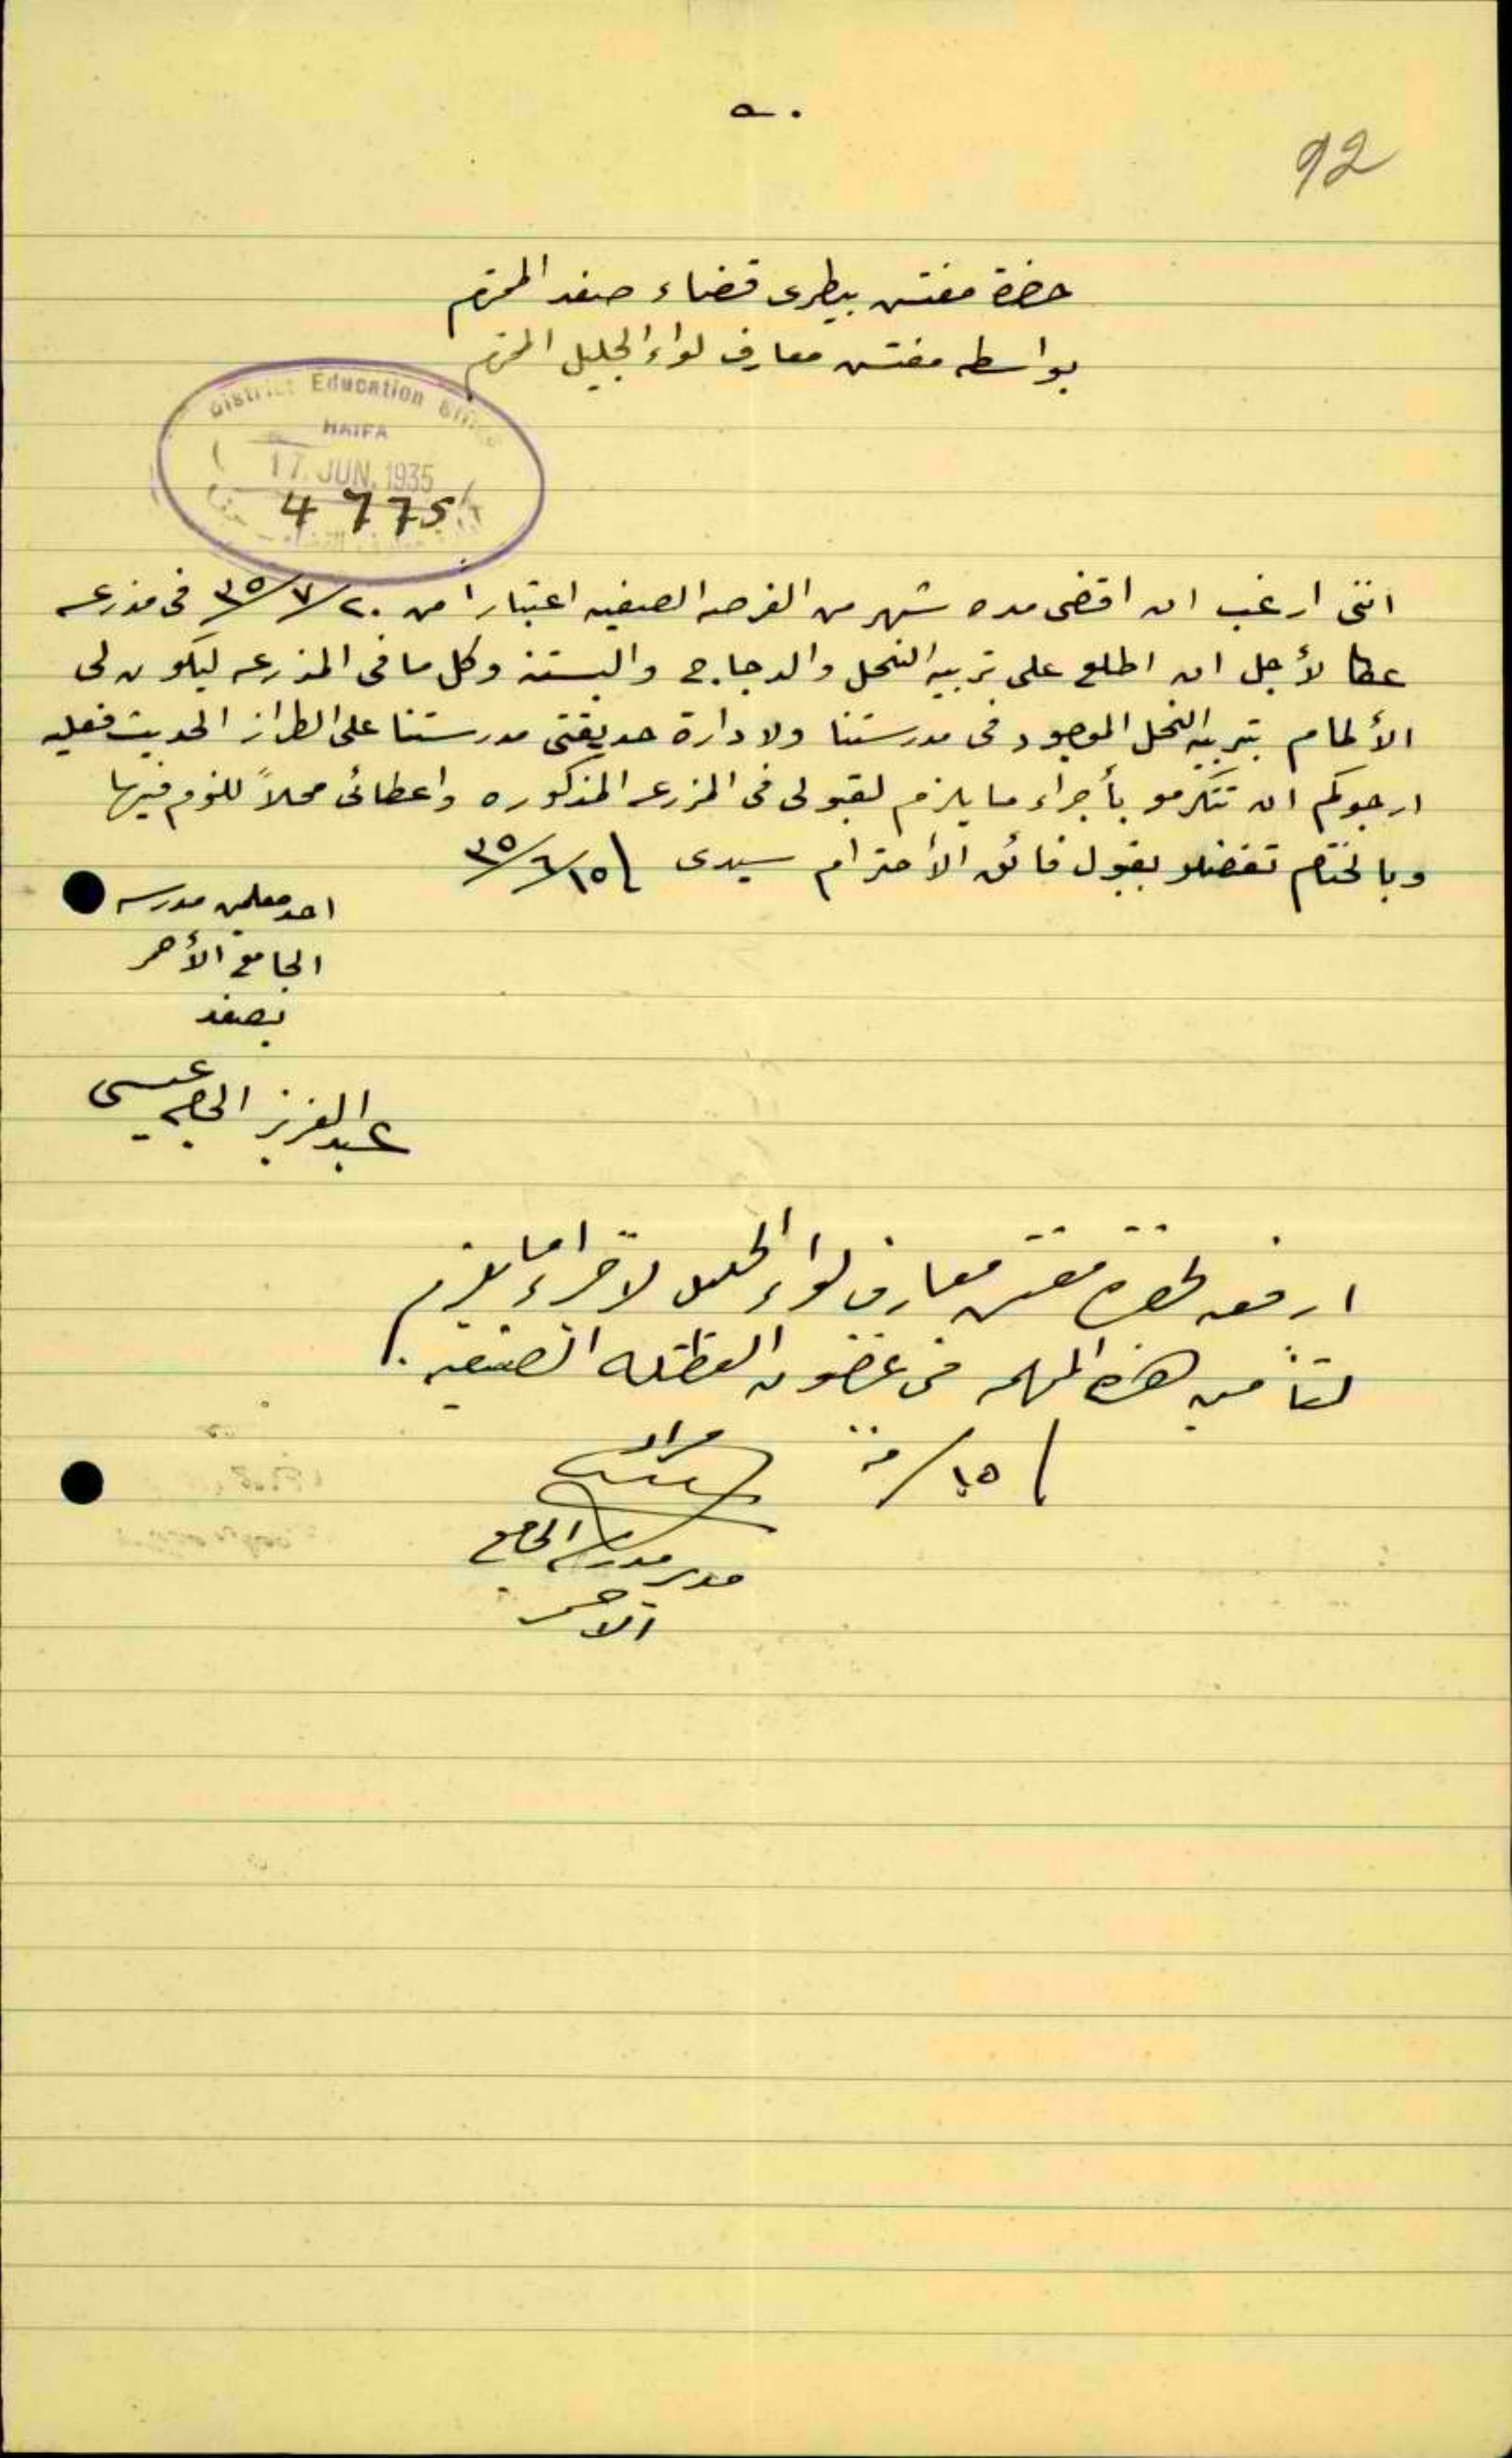 92
حضرة مفتش بيطرى قضاء صفد المحترم
بواسطه مفتش معارف لواء الجليل المحترم
District Education Office
HAIFA
17. JUN. 1935
4775
اننى ارغب ان اقضى مده شهر من الفرصه الصيفيه اعتبارا من ٢٠/٧/٣٥ فى مزرعه
عكا لأجل ان اطلع على تربيه النحل والدجاج والبستنه وكل ما فى المزرعه ليكون لى
الألمام بتربيه النحل الموجود فى مدرستنا ولادارة حديقتى مدرستنا على الطراز الحديث فعليه
ارجوكم ان تتكرمو بأجراء ما يلزم لقبولى فى المزرعه المذكوره واعطائى محلاً للنوم فيها
وبالختام تفضلو بقبول فائق الأحترام سيدى ١٥/٦/٣٥
احد معلمين مدرسه
الجامع الأحمر
بصفد
عبدالعزيز الحاج عيسى
ارفعه لحضرة مفتش معارف لواء الجليل لاجراء ما يلزم
لتأمين هذه المهمه فى غضون العطله الصيفيه.
١٥/
مراد
مدير مدرسة الجامع
الاحمر